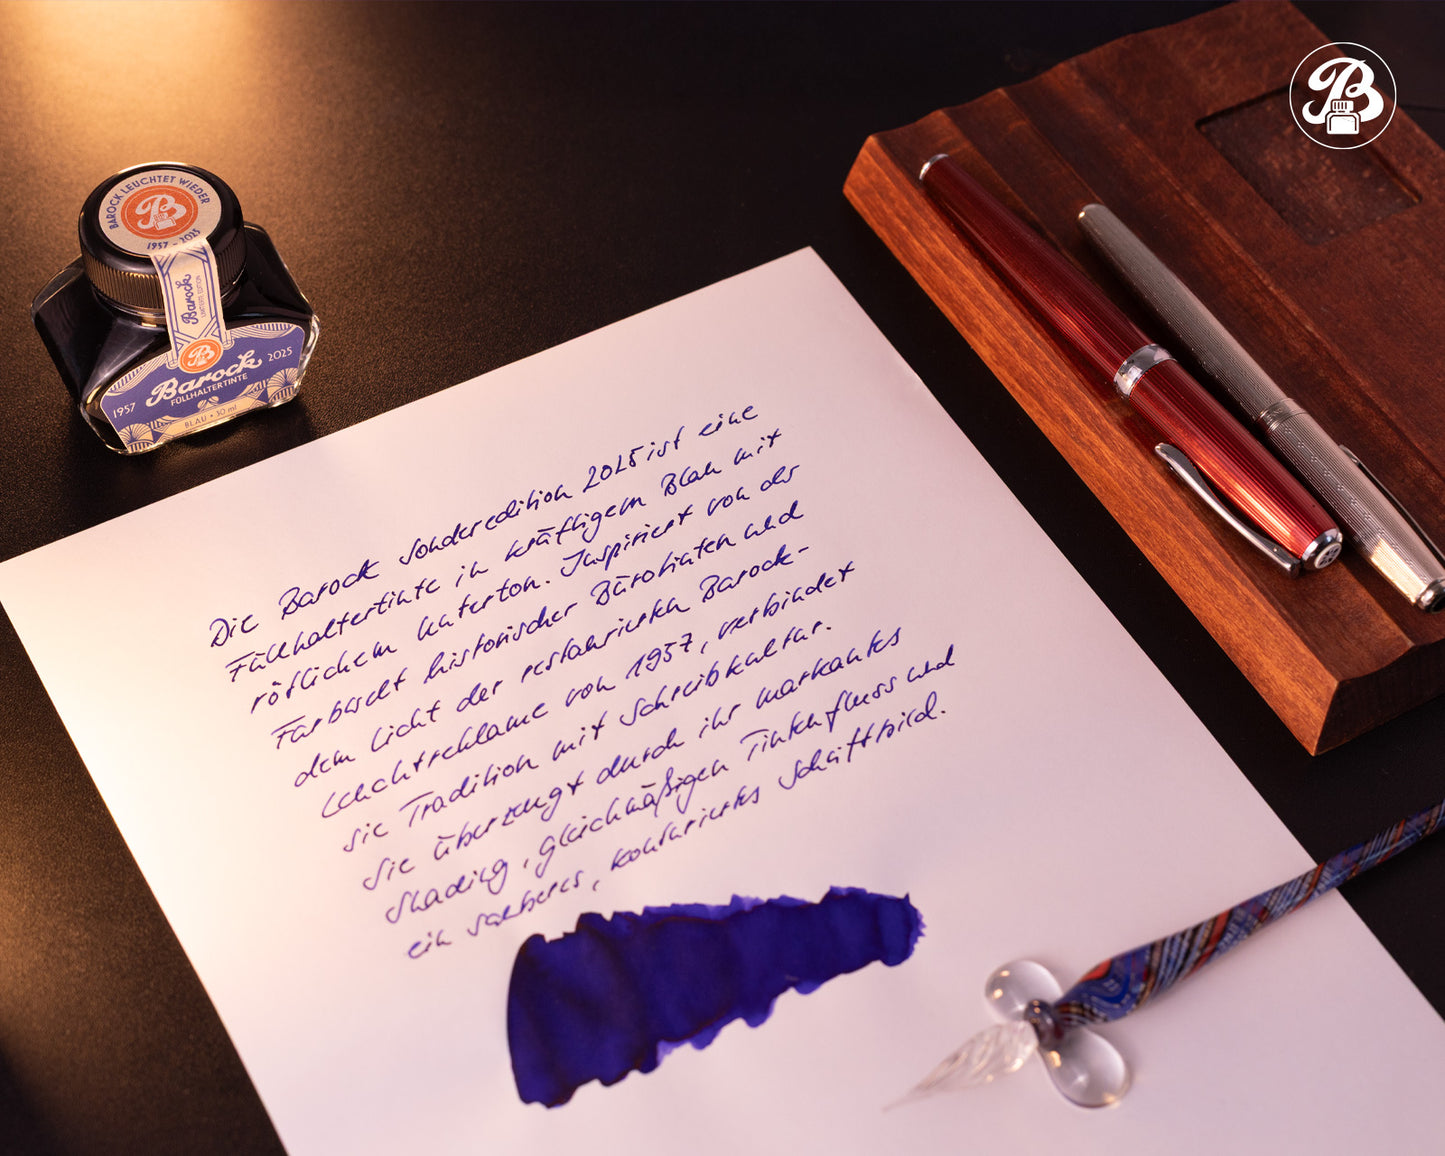 BAROCK LEUCHTET WIEDER
B
1957 - 2025
Barock
LIMITIERTE EDITION
B
Barock
FÜLLHALTERTINTE
1957
2025
BLAU • 30 ml
B
Die Barock Sonderedition 2025 ist eine
Füllhaltertinte in kräftigem Blau mit
rötlichem Unterton. Inspiriert von der
Farbwelt historischer Bürotinten und
dem Licht der restaurierten Barock-
Leuchtreklame von 1957, verbindet
sie Tradition mit Schreibkultur.
Sie überzeugt durch ihr markantes
Shading, gleichmäßigen Tintenfluss und
ein sauberes, konturiertes Schriftbild.